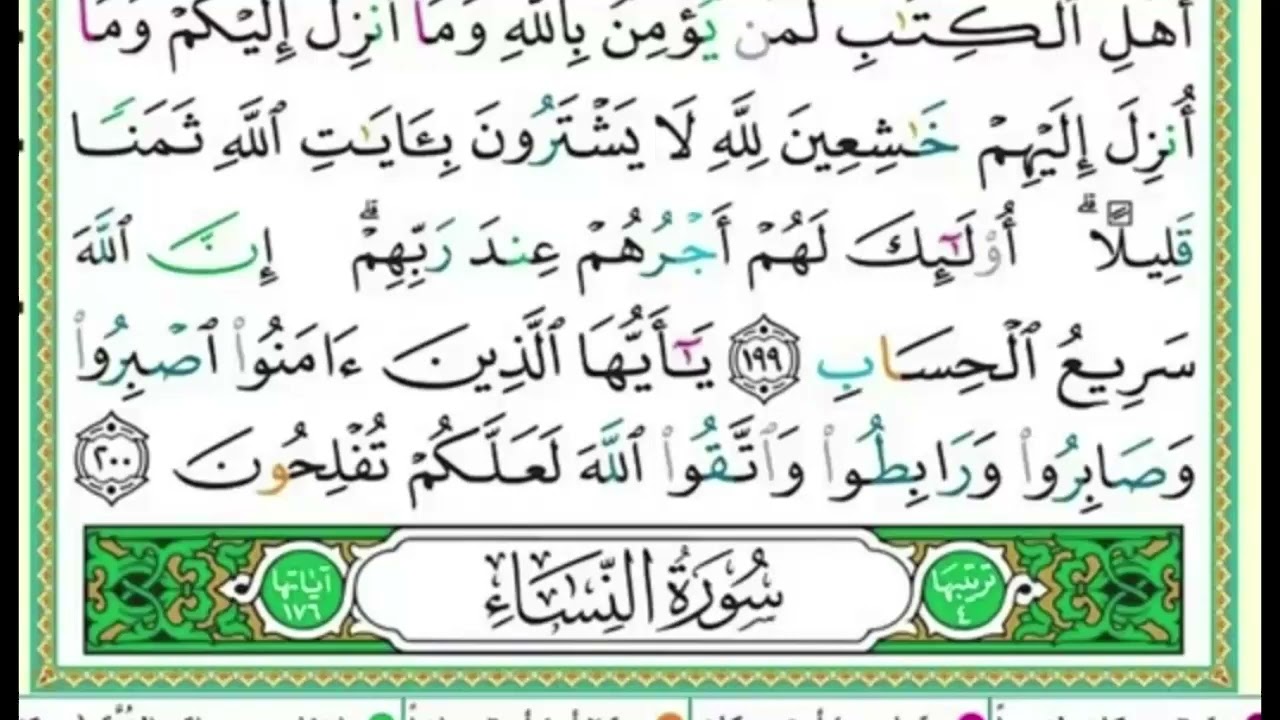 أَهْلِ ٱلْكِتَٰبِ لَمَن يُؤْمِنُ بِٱللَّهِ وَمَآ أُنزِلَ إِلَيْكُمْ وَمَآ
أُنزِلَ إِلَيْهِمْ خَٰشِعِينَ لِلَّهِ لَا يَشْتَرُونَ بِـَٔايَٰتِ ٱللَّهِ ثَمَنًا
قَلِيلًا ۗ أُو۟لَٰٓئِكَ لَهُمْ أَجْرُهُمْ عِندَ رَبِّهِمْ ۗ إِنَّ ٱللَّهَ
سَرِيعُ ٱلْحِسَابِ ١٩٩ يَٰٓأَيُّهَا ٱلَّذِينَ ءَامَنُوا۟ ٱصْبِرُوا۟
وَصَابِرُوا۟ وَرَابِطُوا۟ وَٱتَّقُوا۟ ٱللَّهَ لَعَلَّكُمْ تُفْلِحُونَ ٢٠٠
ترتيبها ٤ سُورَةُ النِّسَاءِ آياتها ١٧٦